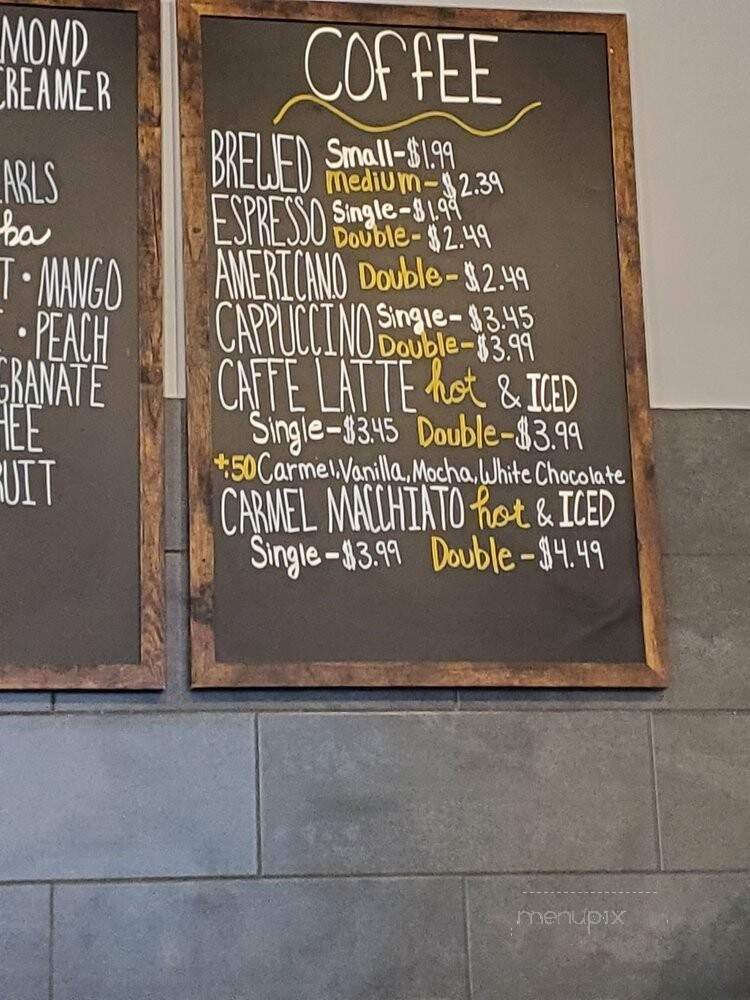 MOND
CREAMER
ARLS
ba
T • MANGO
• PEACH
GRANATE
HEE
UIT
COFFEE
BREWED Small-$1.99
Medium-$2.39
ESPRESSO Single-$1.99
Double-$2.49
AMERICANO Double-$2.49
CAPPUCCINO Single-$3.45
Double-$3.99
CAFFE LATTE hot & ICED
Single-$3.45 Double-$3.99
+.50 Carmel, Vanilla, Mocha, White Chocolate
CARMEL MACCHIATO hot & ICED
Single-$3.99 Double-$4.49
menupix